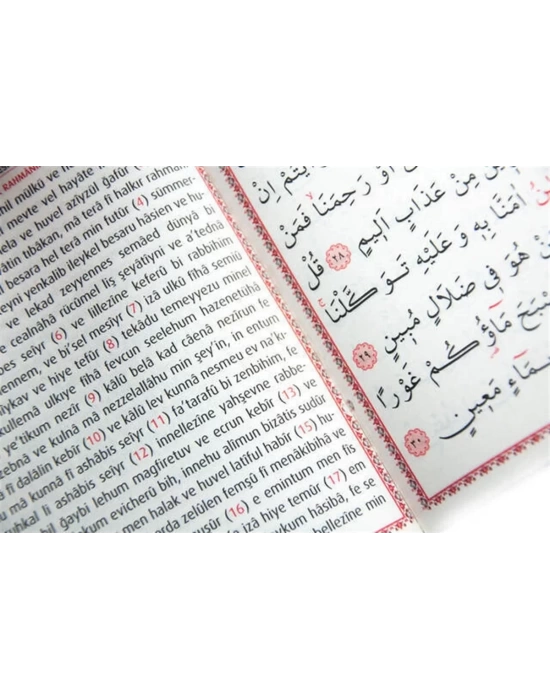 RAHMANİ
mülkü ve
meyte vel hayâte
ve huvel azîyzül ğafûr (2)
tıbâkan, mâ terâ fî halkır rahmani
besara hel terâ min futûr (4) sümmer-
yenkalib ileykel besaru hâsien ve hu-
ve lekad zeyyennes semâed dünyâ bi
cealnâhâ rücûmel liş şeyâtiyni ve a'tednâ
seiyr (6) ve lillezîne keferû bi rabbihim
ve bi'sel mesıyr (7) izâ ulkû fîhâ semiû
ve hiye tefûr (8) tekâdu temeyyezu minel
ulkıye fîhâ fevcun seelehum hazenetühâ
e'tikum nezîr (9) kâlû belâ kad câenâ nezîrun fe
ve kulnâ mâ nezzelallâhu min şey'in, in entum
fî dalâlin kebîr (10) ve kâlû lev kunnâ nesmeu ev na'k-
mâ kunnâ fî ashâbis seiyr (11) fa'tarafû bi zenbihim, fe
fî ashâbis seiyr (12) innellezîne yahşevne rabbe-
bil ğaybi lehum mağfiretuv ve ecrun kebîr (13) ve
evicherû bih, innehu alîmun bizâtis sudûr
men halak ve huvel latîful habîr (15) hu-
zelûlen femşû fî menâkibihâ ve
(16) e emintum men fis
izâ hiye temûr (17) em
hâsıbâ, fe se
bellezîne min
اِنْ
اَوْ رَحِمَنَا فَمَنْ
مِنْ عَذَابٍ اَلِيمٍ ٢٨ قُلْ
اٰمَنَّا بِهٖ وَ عَلَيْهِ تَوَكَّلْنَا
هُوَ فِي ضَلَالٍ مُبِينٍ ٢٩
مَاؤُكُمْ غَوْرًا
مَعِينٍ ٣٠